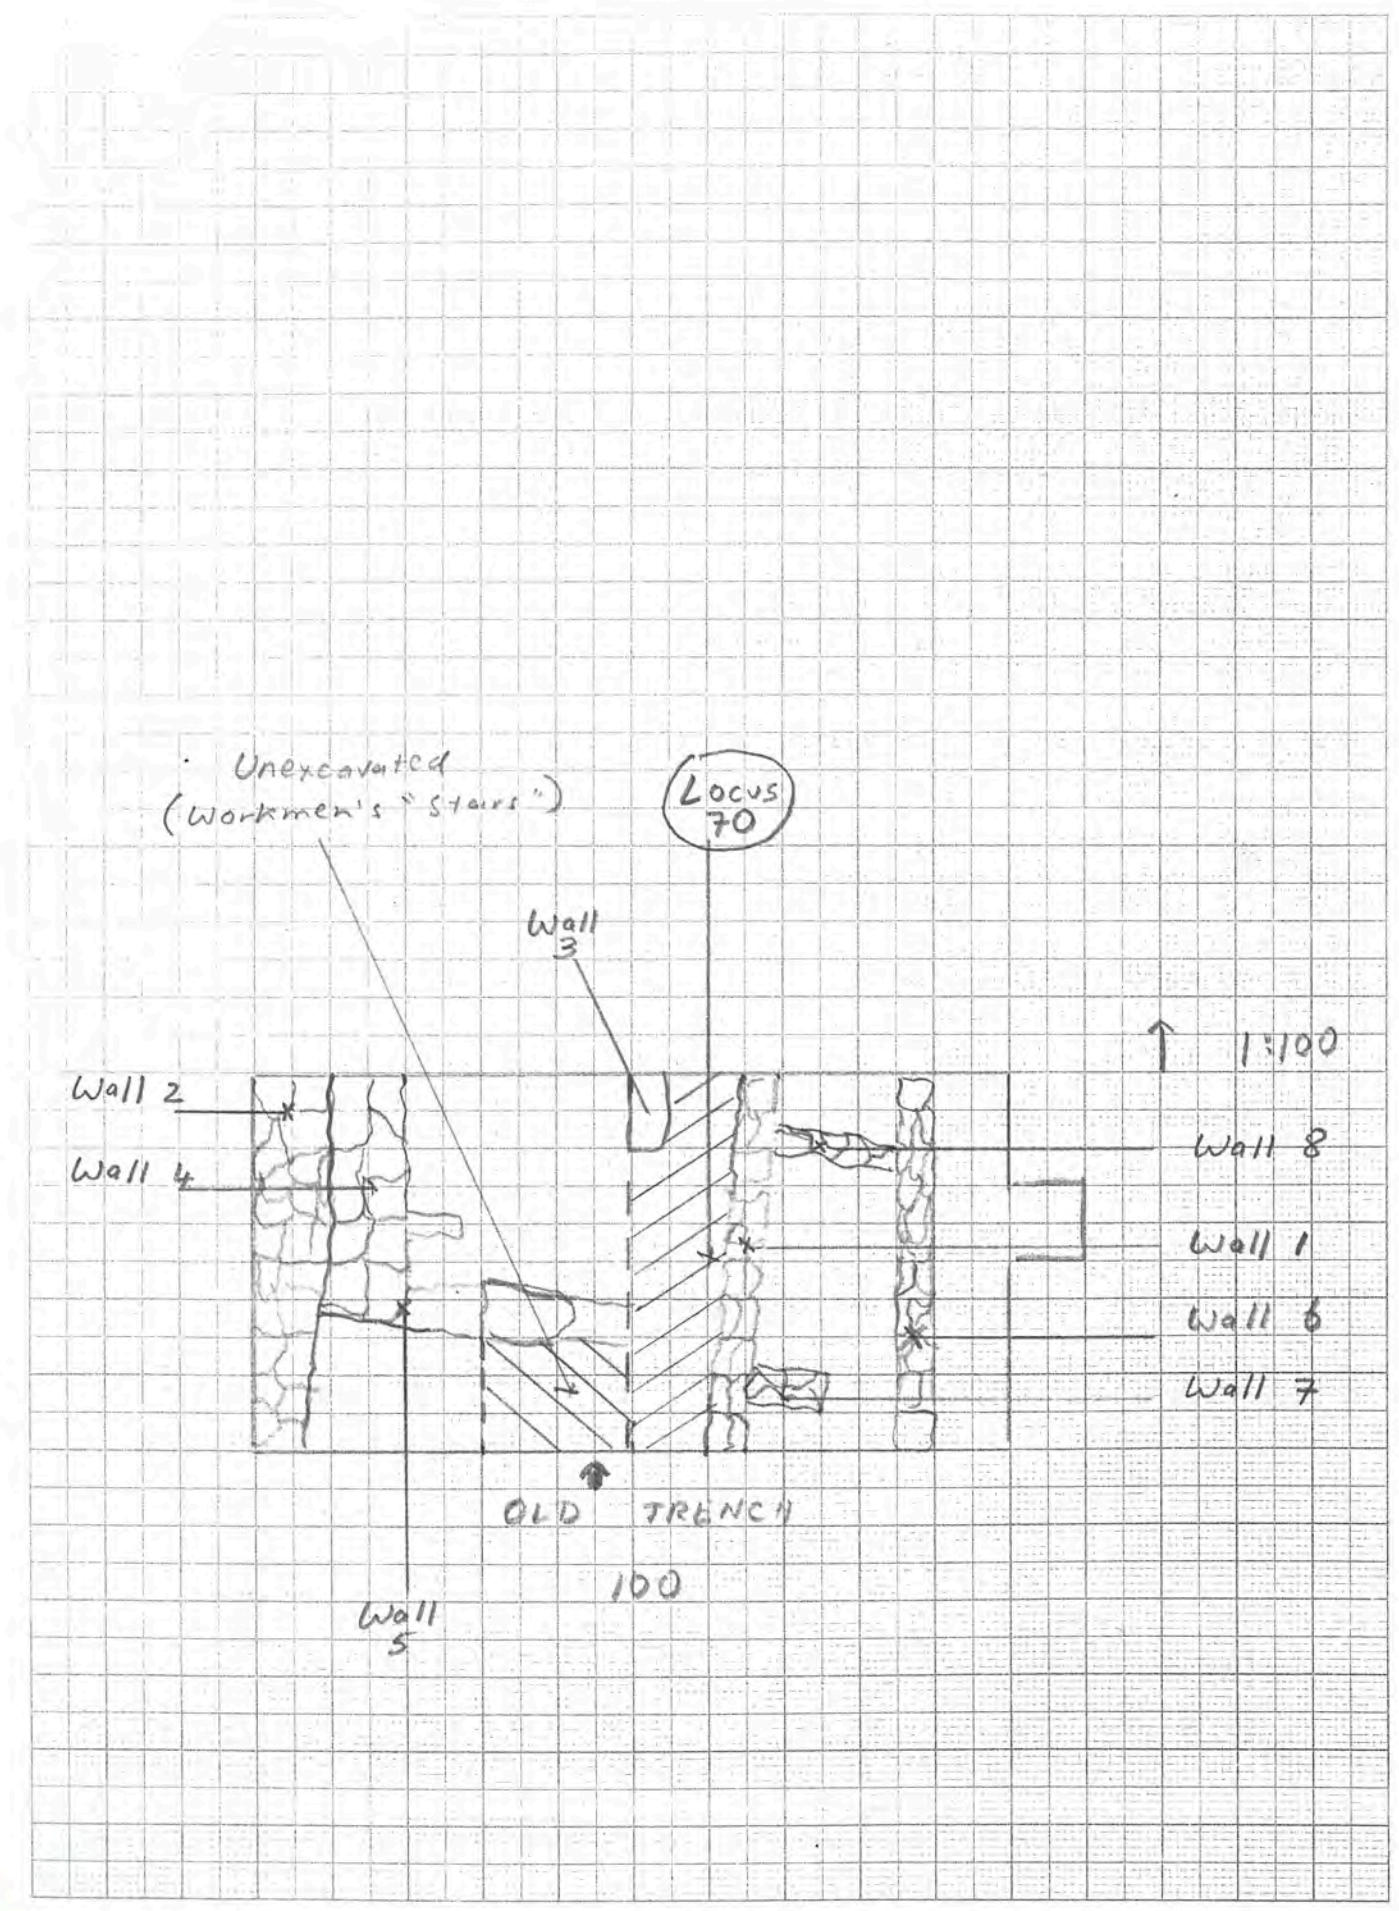 Unexcavated
(Workmen's "Stairs")
Locus
70
Wall
3
1:100
Wall 2
Wall 8
Wall 4
Wall 1
Wall 6
Wall 7
OLD TRENCH
100
Wall
5